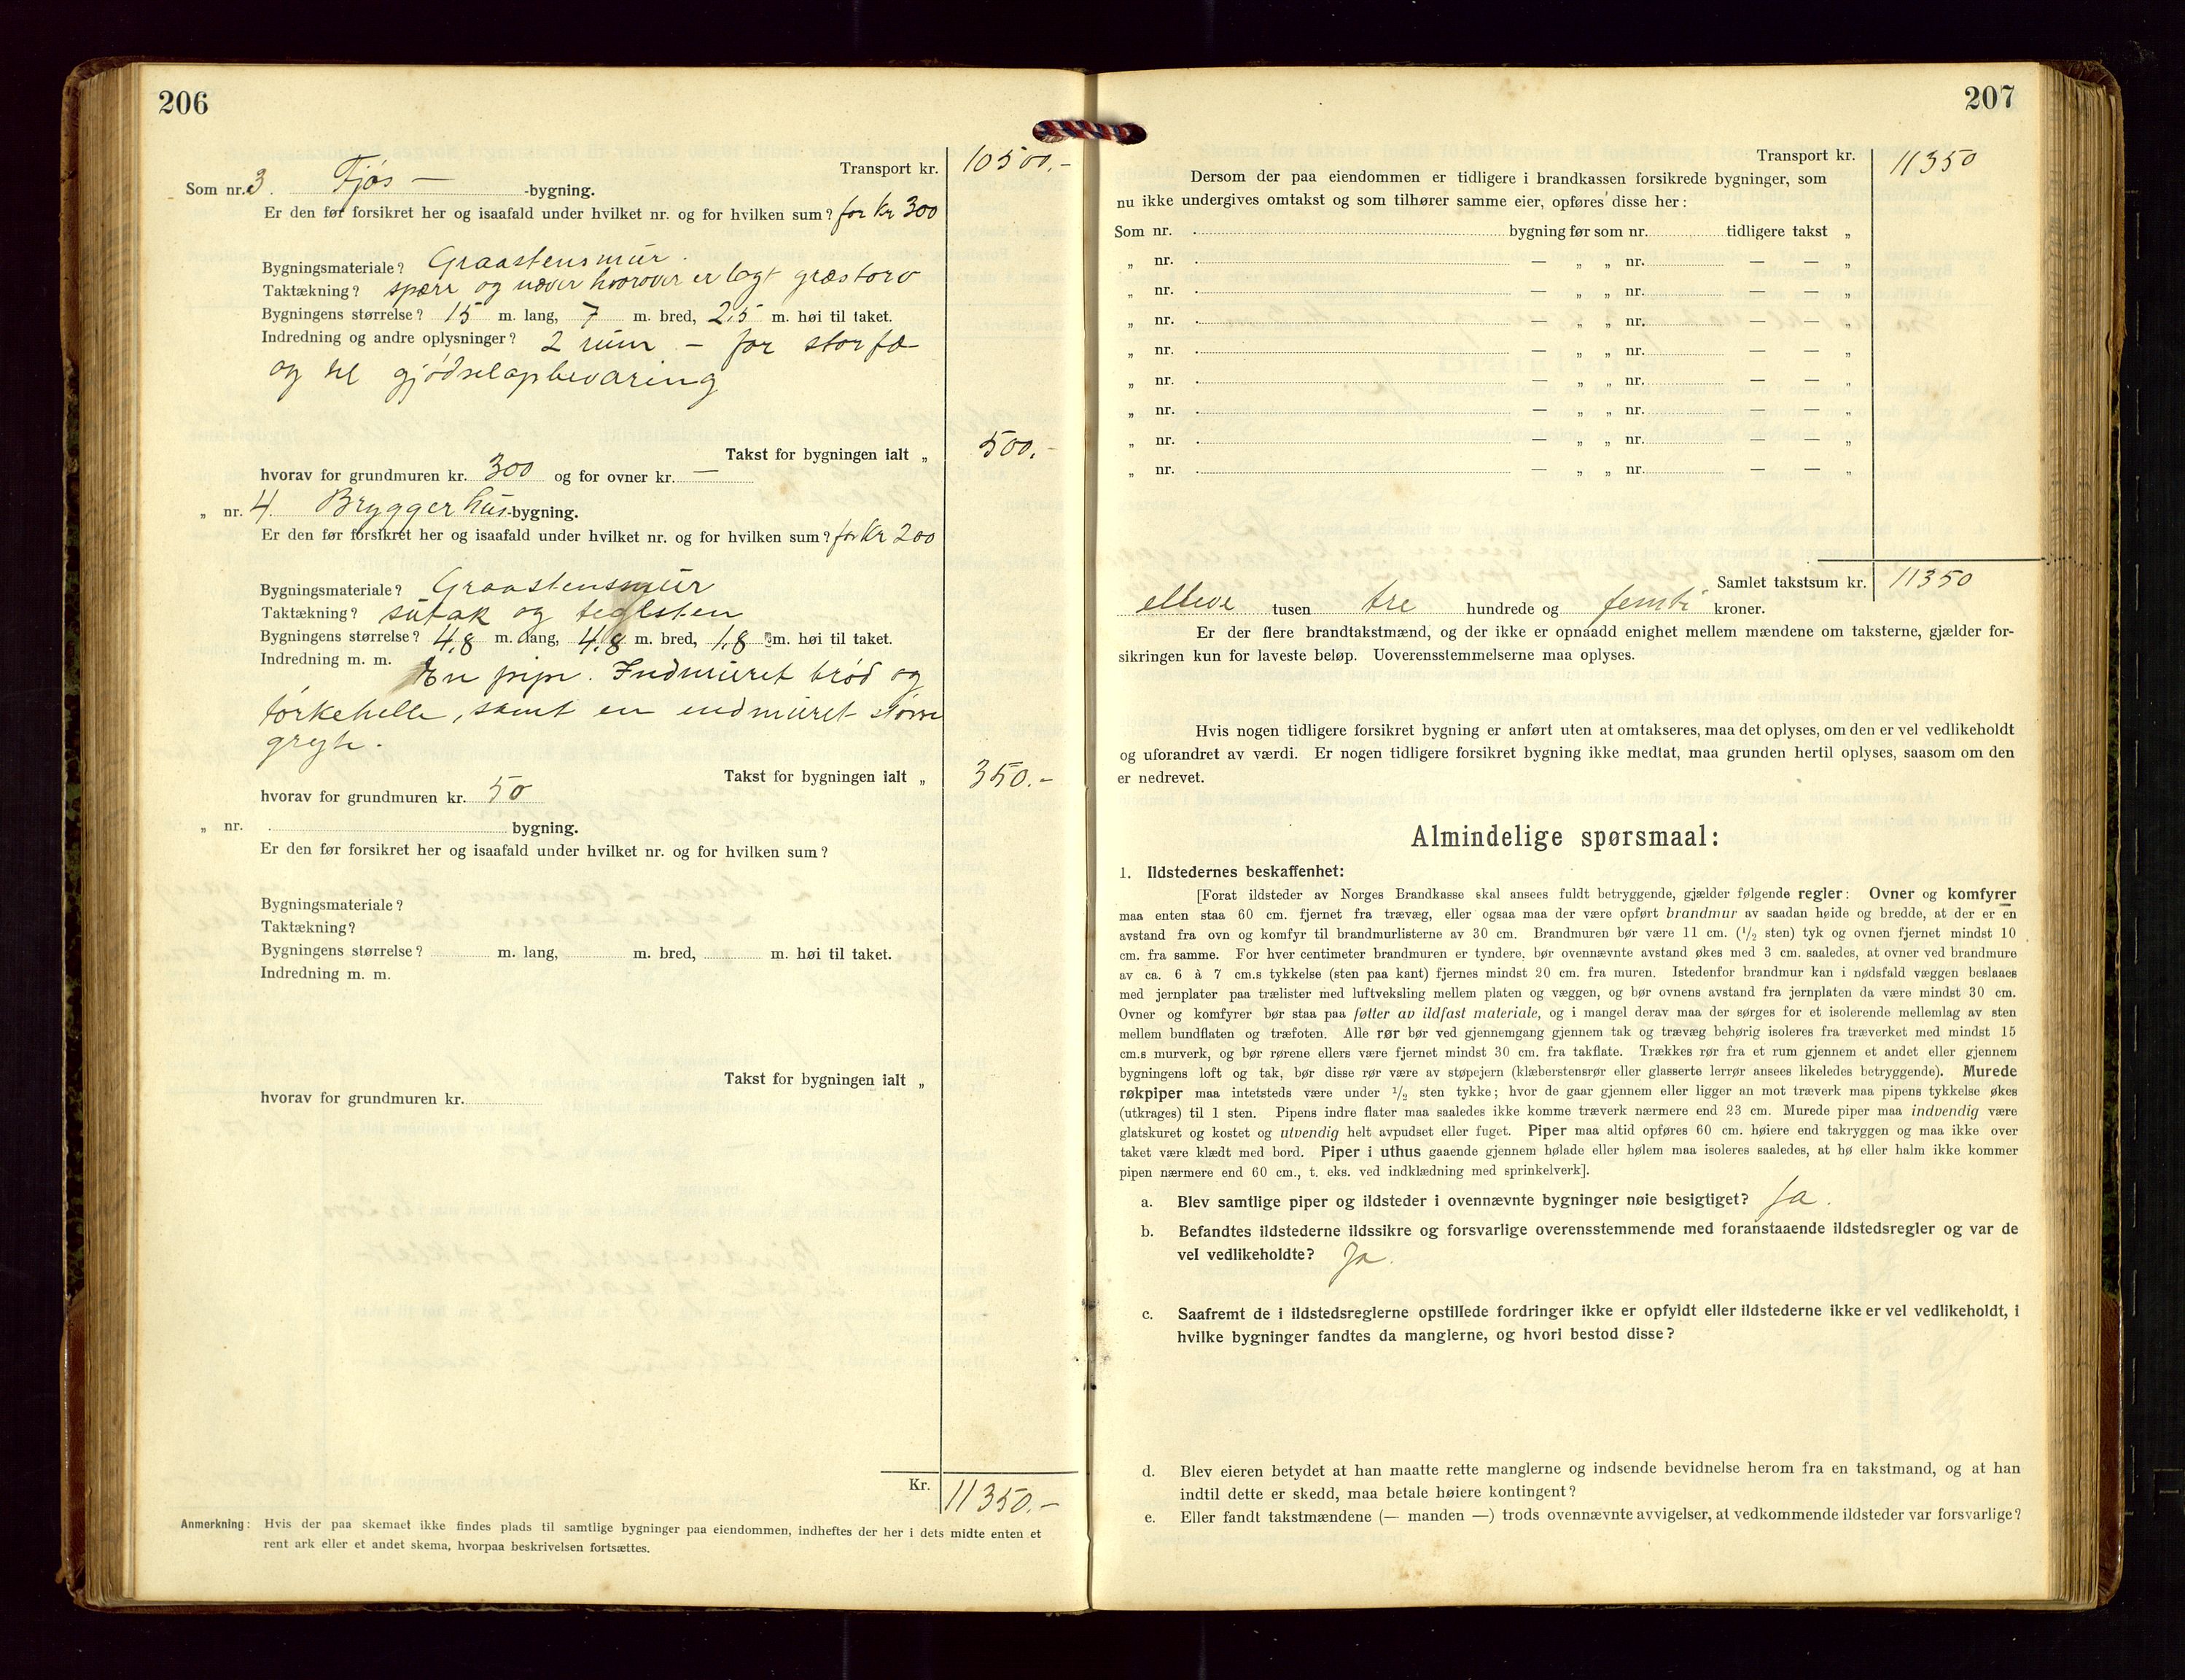 206
Transport kr. 10500.-
Som nr. 3. Fjøs — -bygning.
Er den før forsikret her og isaafald under hvilket nr. og for hvilken sum? for Kr 300
Bygningsmateriale? Graastensmur.
Taktækning? spær og næver hvorover er lagt græstorv
Bygningens størrelse? 15 m. lang, 7 m. bred, 2,5 m. høi til taket.
Indredning og andre oplysninger? 2 rum – for storfæ
og til gjødselopbevaring
Takst for bygningen ialt „ 500.-
hvorav for grundmuren kr. 300 og for ovner kr. —
„ nr. 4. Bryggerhus-bygning.
Er den før forsikret her og isaafald under hvilket nr. og for hvilken sum? for Kr 200
Bygningsmateriale? Graastensmur
Taktækning? sutak og teglsten
Bygningens størrelse? 4,8 m. lang, 4,8 m. bred, 1,8 m. høi til taket.
Indredning m. m. En pipe. Indmuret brød og
tørkehelle, samt en indmuret større
gryte.
Takst for bygningen ialt „ 350.-
hvorav for grundmuren kr. 50
„ nr. bygning.
Er den før forsikret her og isaafald under hvilket nr. og for hvilken sum?
Bygningsmateriale?
Taktækning?
Bygningens størrelse? m. lang, m. bred, m. høi til taket.
Indredning m. m.
Takst for bygningen ialt „
hvorav for grundmuren kr.
Kr. 11350.-
Anmerkning: Hvis der paa skemaet ikke findes plads til samtlige bygninger paa eiendommen, indheftes der her i dets midte enten et
rent ark eller et andet skema, hvorpaa beskrivelsen fortsættes.
207
Transport kr. 11350
Dersom der paa eiendommen er tidligere i brandkassen forsikrede bygninger, som
nu ikke undergives omtakst og som tilhører samme eier, opføres disse her:
Som nr. bygning før som nr. tidligere takst „
„ nr. — „ „ nr. — — „
„ nr. — „ „ nr. — — „
„ nr. — „ „ nr. — — „
„ nr. — „ „ nr. — — „
„ nr. — „ „ nr. — — „
„ nr. — „ „ nr. — — „
„ nr. — „ „ nr. — — „
„ nr. — „ „ nr. — — „
Samlet takstsum kr. 11350
elleve tusen tre hundrede og femti kroner.
Er der flere brandtakstmænd, og der ikke er opnaadd enighet mellem mændene om taksterne, gjælder for-
sikringen kun for laveste beløp. Uoverensstemmelserne maa oplyses.
Hvis nogen tidligere forsikret bygning er anført uten at omtakseres, maa det oplyses, om den er vel vedlikeholdt
og uforandret av værdi. Er nogen tidligere forsikret bygning ikke medtat, maa grunden hertil oplyses, saasom om den
er nedrevet.
Almindelige spørsmaal:
1. Ildstedernes beskaffenhet:
[Forat ildsteder av Norges Brandkasse skal ansees fuldt betryggende, gjælder følgende regler: Ovner og komfyrer
maa enten staa 60 cm. fjernet fra trævæg, eller ogsaa maa der være opført brandmur av saadan høide og bredde, at der er en
avstand fra ovn og komfyr til brandmurlisterne av 30 cm. Brandmuren bør være 11 cm. (1/2 sten) tyk og ovnen fjernet mindst 10
cm. fra samme. For hver centimeter brandmuren er tyndere, bør ovennævnte avstand økes med 3 cm. saaledes, at ovner ved brandmure
av ca. 6 à 7 cm.s tykkelse (sten paa kant) fjernes mindst 20 cm. fra muren. Istedenfor brandmur kan i nødsfald væggen beslaaes
med jernplater paa trælister med luftveksling mellem platen og væggen, og bør ovnens avstand fra jernplaten da være mindst 30 cm.
Ovner og komfyrer bør staa paa føtter av ildfast materiale, og i mangel derav maa der sørges for et isolerende mellemlag av sten
mellem bundflaten og træfoten. Alle rør bør ved gjennemgang gjennem tak og trævæg behørig isoleres fra træverket med mindst 15
cm.s murverk, og bør rørene ellers være fjernet mindst 30 cm. fra takflate. Trækkes rør fra et rum gjennem et andet eller gjennem
bygningens loft og tak, bør disse rør være av støpejern (klæberstensrør eller glasserte lerrør ansees likeledes betryggende). Murede
røkpiper maa intetsteds være under 1/2 sten tykke; hvor de gaar gjennem eller ligger an mot træverk maa pipens tykkelse økes
(utkrages) til 1 sten. Pipens indre flater maa saaledes ikke komme træverk nærmere end 23 cm. Murede piper maa indvendig være
glatskuret og kostet og utvendig helt avpudset eller fuget. Piper maa altid opføres 60 cm. høiere end takryggen og maa ikke over
taket være klædt med bord. Piper i uthus gaaende gjennem hølade eller hølem maa isoleres saaledes, at hø eller halm ikke kommer
pipen nærmere end 60 cm., t. eks. ved indklædning med sprinkelverk].
a. Blev samtlige piper og ildsteder i ovennævnte bygninger nøie besigtiget? Ja.
b. Befandtes ildstederne ildssikre og forsvarlige overensstemmende med foranstaaende ildstedsregler og var de
vel vedlikeholdte? Ja.
c. Saafremt de i ildstedsreglerne opstillede fordringer ikke er opfyldt eller ildstederne ikke er vel vedlikeholdt, i
hvilke bygninger fandtes da manglerne, og hvori bestod disse?
d. Blev eieren betydet at han maatte rette manglerne og indsende bevidnelse herom fra en takstmand, og at han
indtil dette er skedd, maa betale høiere kontingent?
e. Eller fandt takstmændene (— manden —) trods ovennævnte avvigelser, at vedkommende ildsteder var forsvarlige?